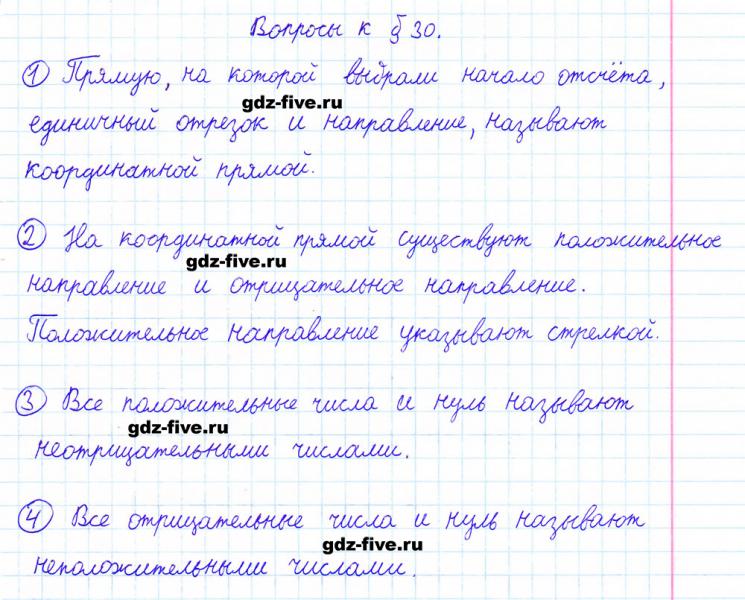 Вопросы к § 30.
① Прямую, на которой выбрали начало отсчёта,
gdz-five.ru
единичный отрезок и направление, называют
координатной прямой.
② На координатной прямой существуют положительное
gdz-five.ru
направление и отрицательное направление.
Положительное направление указывают стрелкой.
③ Все положительные числа и нуль называют
gdz-five.ru
неотрицательными числами.
④ Все отрицательные числа и нуль называют
gdz-five.ru
неположительными числами.